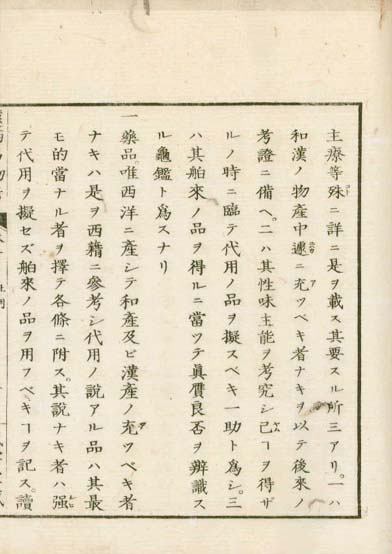 主療等殊ニ詳ニ是ヲ載ス其要スル所三アリ。一ハ
和漢ノ物産中遽ニ充ツベキ者ナキヲ以テ後來ノ
考證ニ備ヘ。二ハ其性味主能ヲ考究シ已ムヿヲ得ザ
ルノ時ニ臨テ代用ノ品ヲ擬スベキ一助ト爲シ。三
ハ其舶來ノ品ヲ得ルニ當ツテ眞贋良否ヲ辨識ス
ル龜鑑ト爲スナリ
一藥品。唯西洋ニ産シテ和産及ビ漢産ノ充ツベキ者
ナキハ是ヲ西籍ニ參考シ代用ノ説アル品ハ其最
モ的當ナル者ヲ擇テ各條ニ附ス。其説ナキ者ハ强
テ代用ヲ擬セズ舶來ノ品ヲ用フベキヿヲ記ス。讀